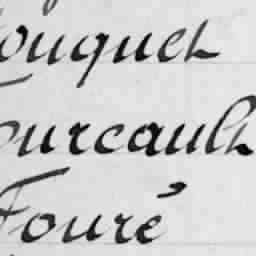 ouquet
ourcault
Fouré